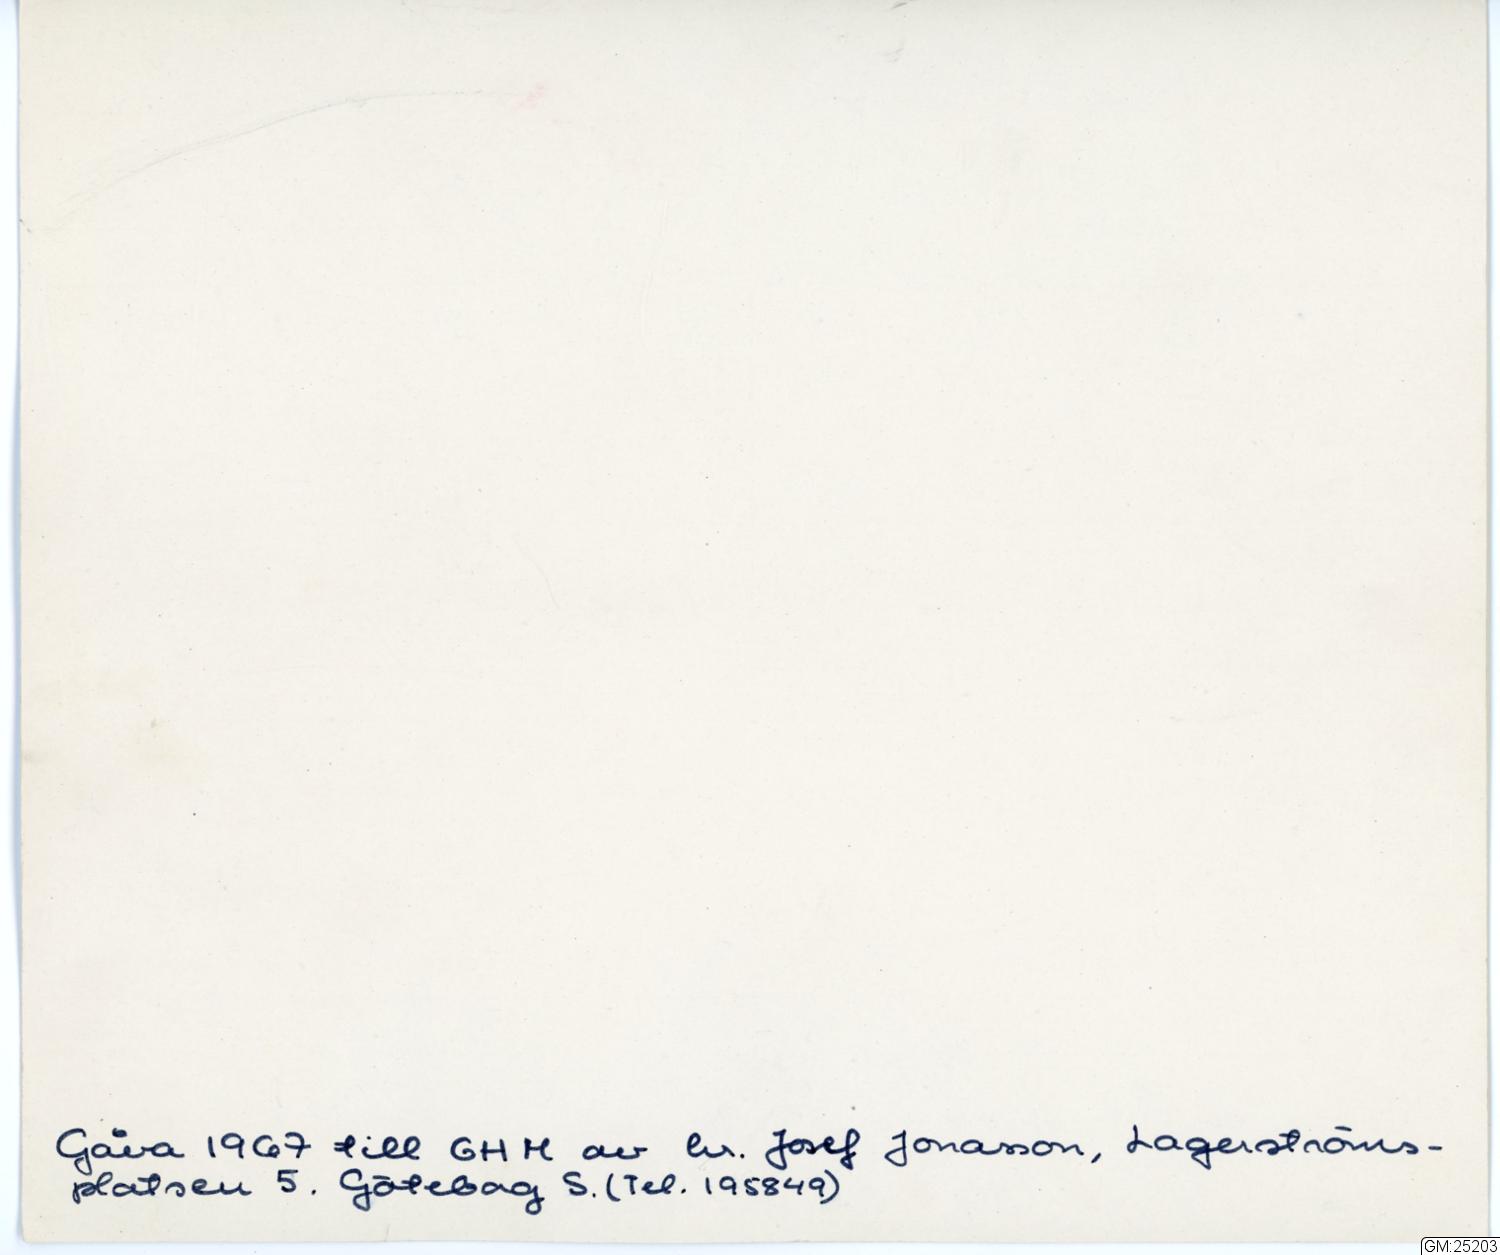 Gåva 1967 till GHM av hr. Josef Jonasson, Lagerströms-
platsen 5. Göteborg S. (Tel. 195849)
GM:25203